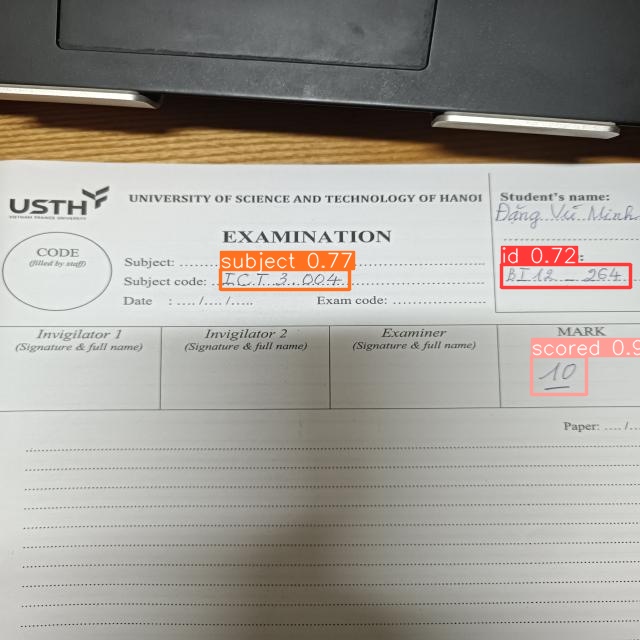 USTH
VIETNAM FRANCE UNIVERSITY
UNIVERSITY OF SCIENCE AND TECHNOLOGY OF HANOI
Student's name:
Đặng Vũ Minh
EXAMINATION
CODE
(filled by staff)
Subject: ........
subject 0.77
id 0.72
Subject code: ..I.C.T.3..004.
BI12_264
Date : ..../..../.....
Exam code: ..................
Invigilator 1
(Signature & full name)
Invigilator 2
(Signature & full name)
Examiner
(Signature & full name)
MARK
scored 0.9
10
Paper: ..../...